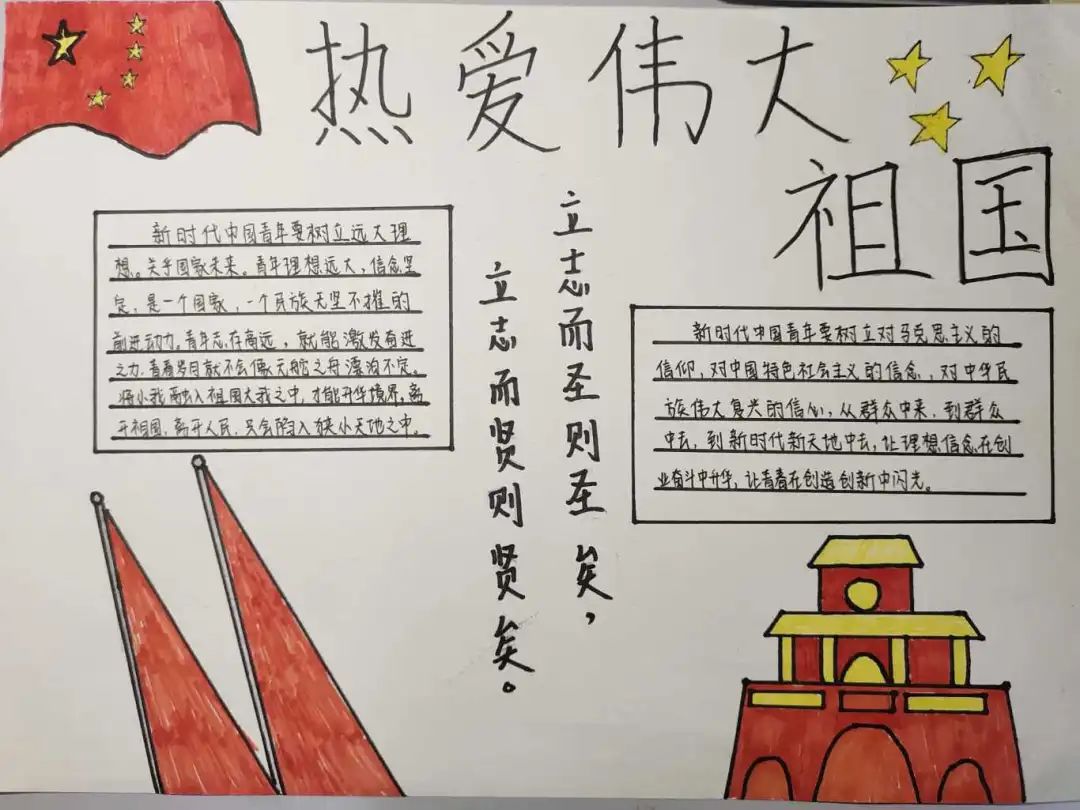 热爱伟大
祖国
新时代中国青年要树立远大理
想。关乎国家未来。青年理想远大，信念坚
定，是一个国家，一个民族无坚不摧的
前进动力。青年志存高远，就能激发奋进
之力，青春岁月就不会像无舵之舟漂泊不定。
将小我融入祖国大我之中，才能升华境界，离
开祖国，离开人民，只会陷入狭小天地之中。
立志而圣则圣矣，
立志而贤则贤矣。
新时代中国青年要树立对马克思主义的
信仰，对中国特色社会主义的信念，对中华民
族伟大复兴的信心，从群众中来，到群众
中去，到新时代新天地中去，让理想信念在创
业奋斗中升华，让青春在创造创新中闪光。